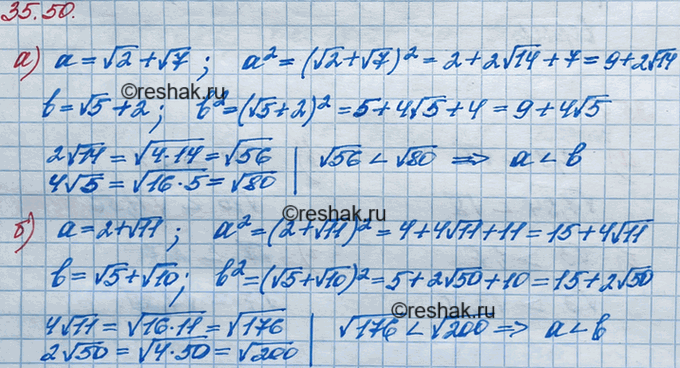 35.50.
а) a = √2 + √7 ; a² = (√2 + √7)² = 2 + 2√14 + 7 = 9 + 2√14
reshak.ru
b = √5 + 2 ; b² = (√5 + 2)² = 5 + 4√5 + 4 = 9 + 4√5
2√14 = √4·14 = √56 | √56 < √80 => a < b
4√5 = √16·5 = √80
reshak.ru
б) a = 2 + √11 ; a² = (2 + √11)² = 4 + 4√11 + 11 = 15 + 4√11
b = √5 + √10 ; b² = (√5 + √10)² = 5 + 2√50 + 10 = 15 + 2√50
reshak.ru
4√11 = √16·11 = √176 | √176 < √200 => a < b
2√50 = √4·50 = √200